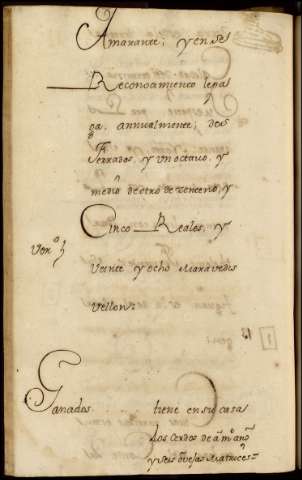 Amarante; y en su
Reconocimiento le pa
ga, annualmente; dos
Ferrados y un octavo, y
medio de otro de zenteno, y
Cinco Reales, y
Veinte y ocho Maravedis
Vellon.
Ganados tiene en su casa
dos Cerdos de a mº año
y seis Ovejas Matrices